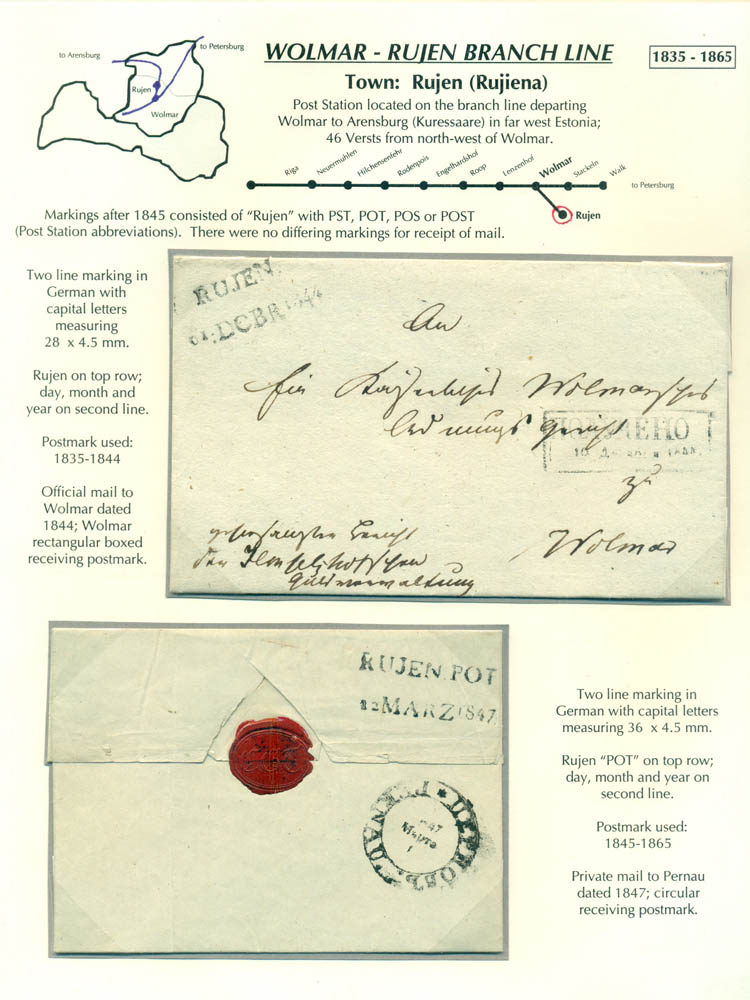 to Arensburg
to Petersburg
Rujen
Wolmar
WOLMAR - RUJEN BRANCH LINE
1835 - 1865
Town: Rujen (Rujiena)
Post Station located on the branch line departing
Wolmar to Arensburg (Kuressaare) in far west Estonia;
46 Versts from north-west of Wolmar.
Riga
Neuermuhlen
Hilchensfehr
Rodenpois
Engelhardshof
Roop
Lenzenhof
Wolmar
Stackeln
Walk
to Petersburg
Rujen
Markings after 1845 consisted of "Rujen" with PST, POT, POS or POST
(Post Station abbreviations). There were no differing markings for receipt of mail.
Two line marking in
German with
capital letters
measuring
28 x 4.5 mm.
Rujen on top row;
day, month and
year on second line.
Postmark used:
1835-1844
Official mail to
Wolmar dated
1844; Wolmar
rectangular boxed
receiving postmark.
RUJEN.
DCBR 1844
An
Wolmarsches
zu
Wolmar
RUJEN.POT
12 MARZ 1847
ПЕРНОВЪ
PERNAU
Марта
Two line marking in
German with capital letters
measuring 36 x 4.5 mm.
Rujen "POT" on top row;
day, month and year on
second line.
Postmark used:
1845-1865
Private mail to Pernau
dated 1847; circular
receiving postmark.